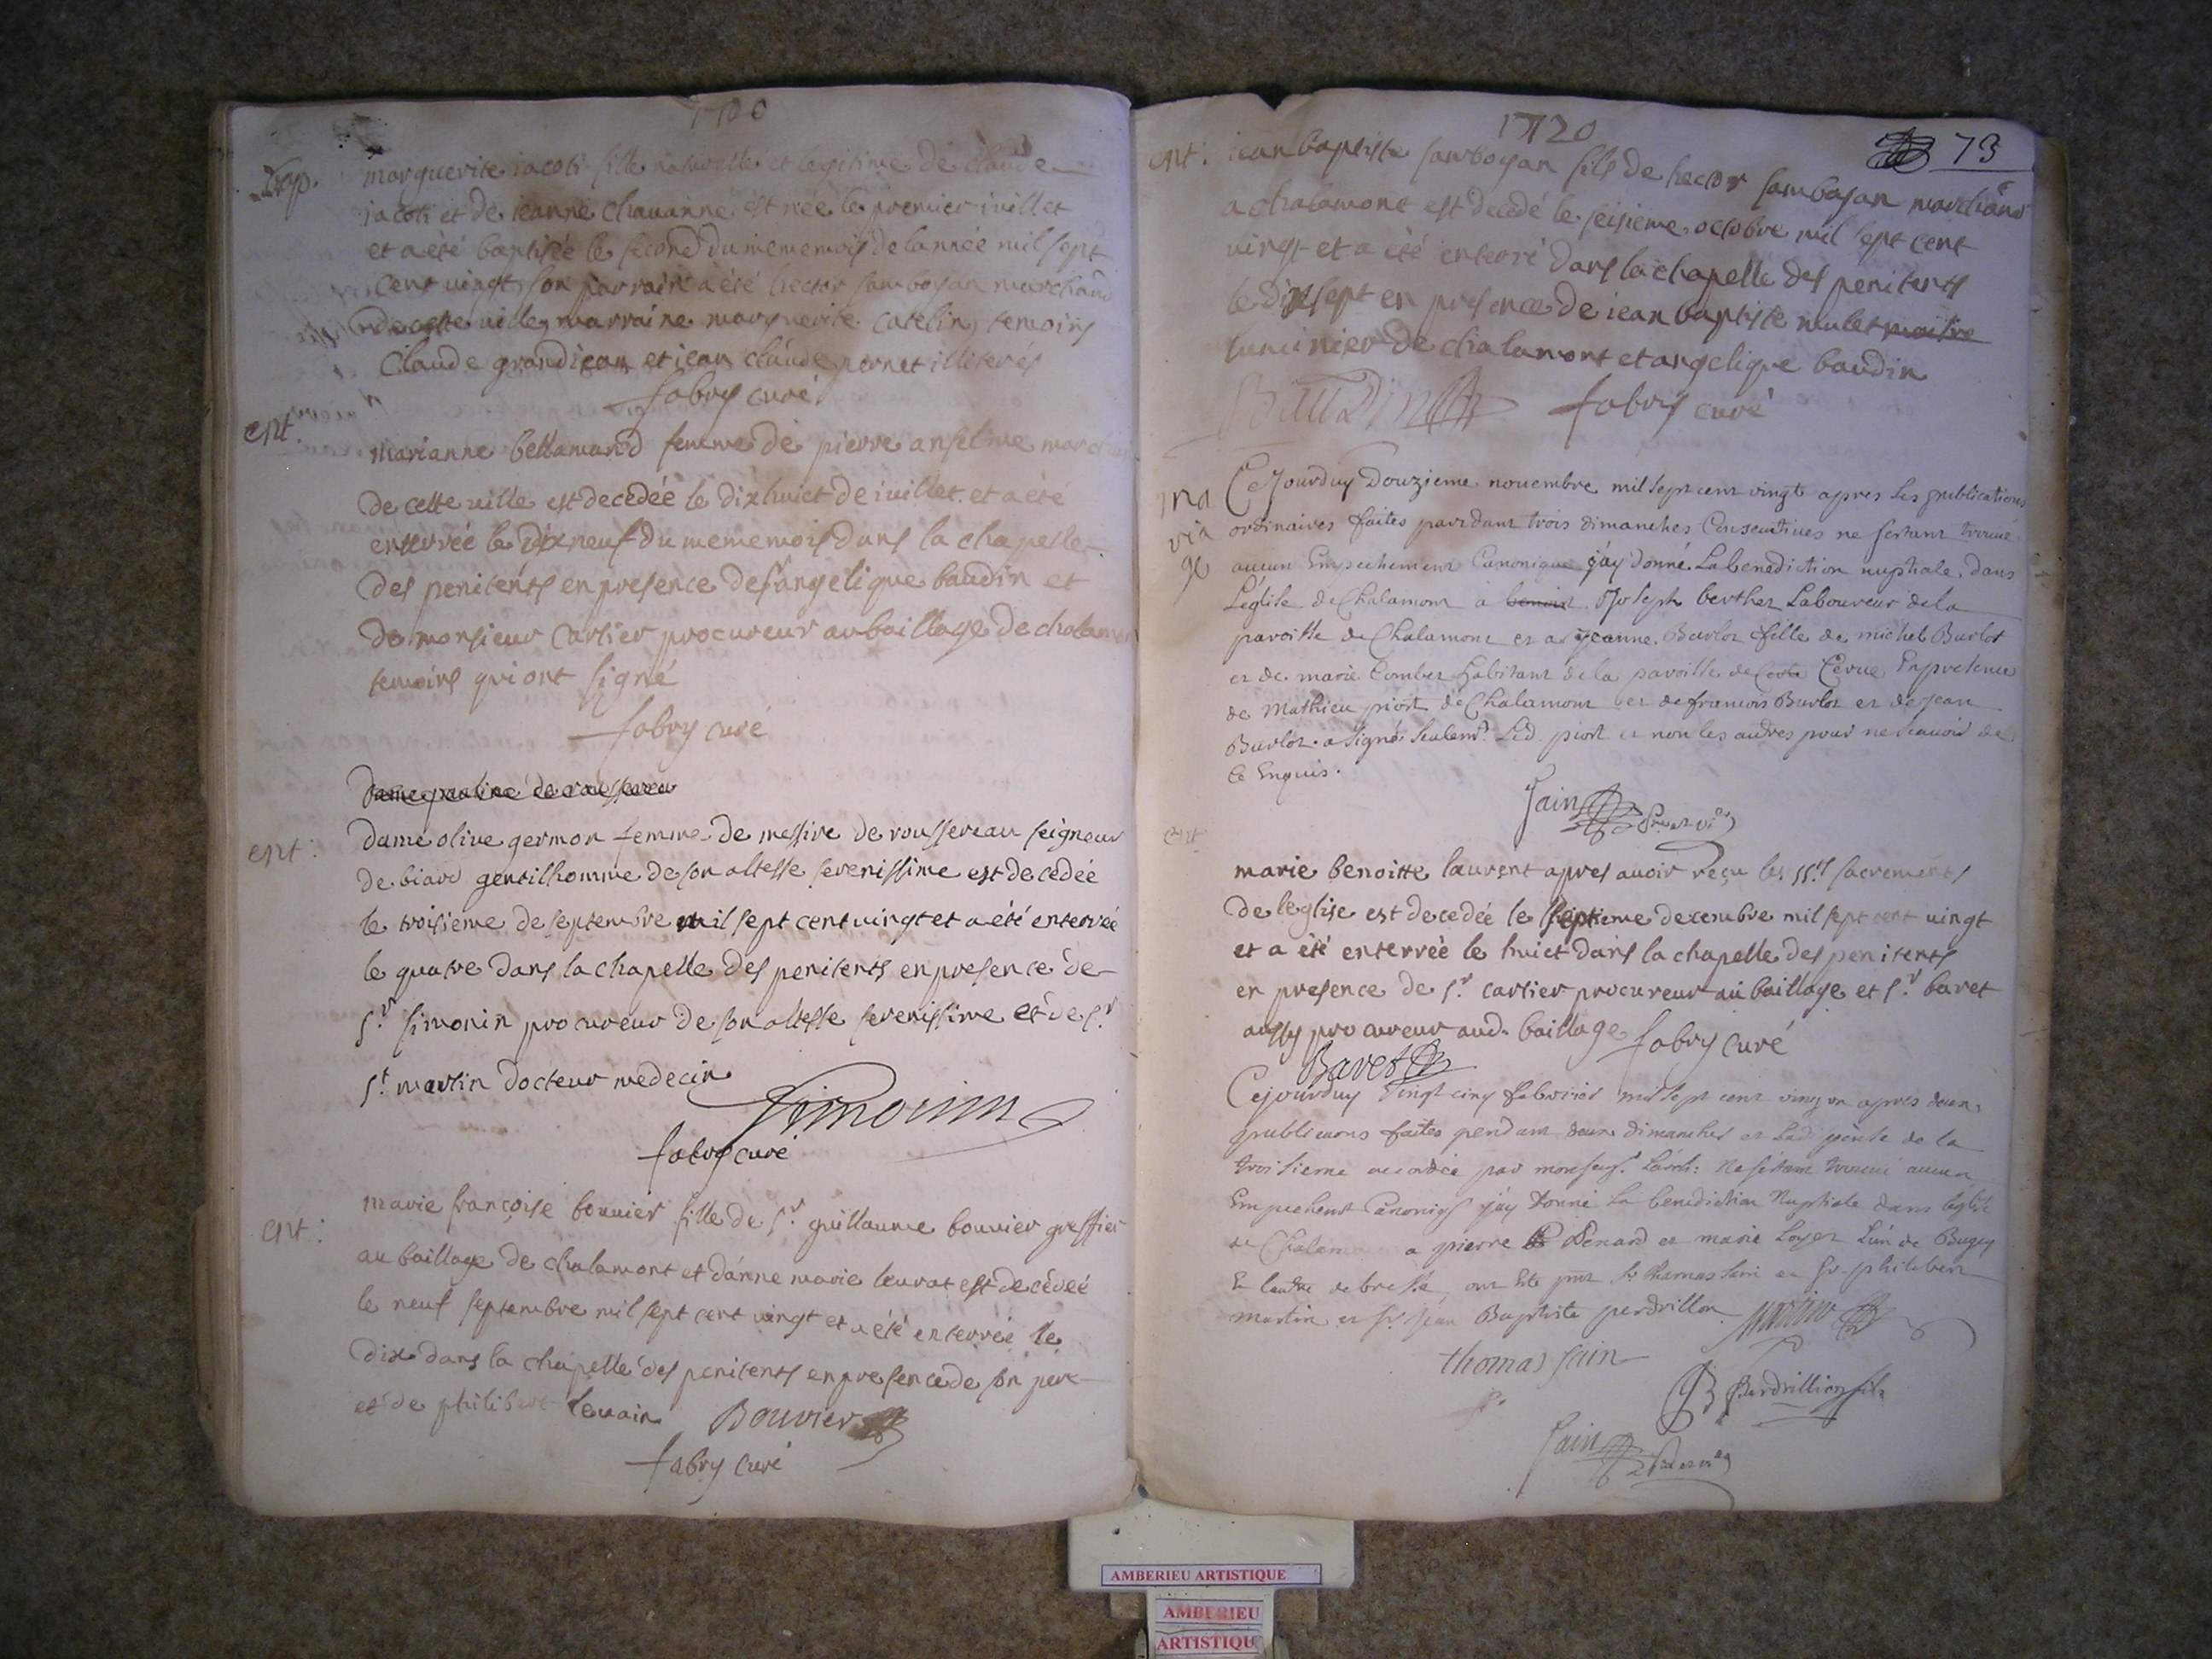 bap.
marguerite iacoti fille naturelle et legitime de claude
iacoti et de ieanne chauanne est née le premier iuillet
et a été baptisée le second du meme mois de lannée mil sept
cent uingt son parrain a été hector samboyan marchand
de cette uille, marraine marguerite catelin, temoins
claude grandiean et iean claude pernet illiterés
fabry curé
ent.
marianne bellamand femme de pierre anselme
de cette uille est decedée le dixhuict de iuillet et a été
enterrée le dix neuf du meme mois dans la chapelle
des penitents en presence des angelique baudin et
de monsieur cartier procureur au baillage de
temoins qui ont signé
fabry curé
ent:
dame olive germon femme de messire de roussereau seigneur
de biard gentilhomme de son altesse serenissime est decedée
le troisieme de septembre mil sept cent uingt et a été enterrée
le quatre dans la chapelle des penitents en presence de
sr simonin procureur de son altesse serenissime et de sr
st martin docteur medecin
Simonin
fabry curé
ent:
marie françoise bouuier fille de sr guillaume bouuier greffier
au baillage de chalamont et danne marie leurat est decedeé
le neuf septembre mil sept cent uingt et a été enterrée le
dix dans la chapelle des penitents en presence de son pere
et de philibert leuain Bouvier
fabry curé
1720
73
ent:
iean baptiste samboyan fils de hector samboyan marchand
a chalamont est decedé le seisieme octobre mil sept cent
uingt et a été enterré dans la chapelle des penitents
le dixsept en presence de iean baptiste mulet maitre
luminier de chalamont et angelique baudin
Baudin fabry curé
ma
ria
ge
Cejourduy Douzieme nouembre mil sept cent vingt apres les publications
ordinaires faites pendant trois dimanches Consecutiues ne sestant trouué
aucun Empechement Canonique j'ay donné La benediction nuptiale, dans
L'église de Chalamont a benoist Joseph berthet Laboureur de la
paroisse de Chalamont et a jeanne Burlot fille de michel Burlot
et de marie Combet habitant de la paroisse de Cerue En presence
de Mathieu piost de Chalamont et de francois Burlot et de jean
Burlot. a signé seulemt Led. piost et non les autres pour ne scauoir de
ce Enquis.
Jain
ent
marie benoitte laurent apres auoir reçu les sts sacrements
de leglise est decedée le septieme decembre mil sept cent uingt
et a été enterrée le huict dans la chapelle des penitents
en presence de sr cartier procureur au baillage et sr baret
aussy procureur aud. baillage fabry curé
Baret
Cejourduy Vingt cinq febvrier mil sept cent vingt un apres deux
publications faites pendant deux dimanches et La dispense de la
troisieme accordée par monseigr L'arch: ne s'étant trouué aucun
Empechent Canoniq j'ay donné La benediction Nuptiale dans leglise
de a pierre Penard et marie Loyet L'un de Bugey
et lautre de bresse, ont été pnt sr thomas Jain et sr philibert
martin et sr jean Baptiste perdrillon martin
thomas Jain
JB Perdrillion fils
Jain
AMBERIEU ARTISTIQUE
AMBERIEU
ARTISTIQU